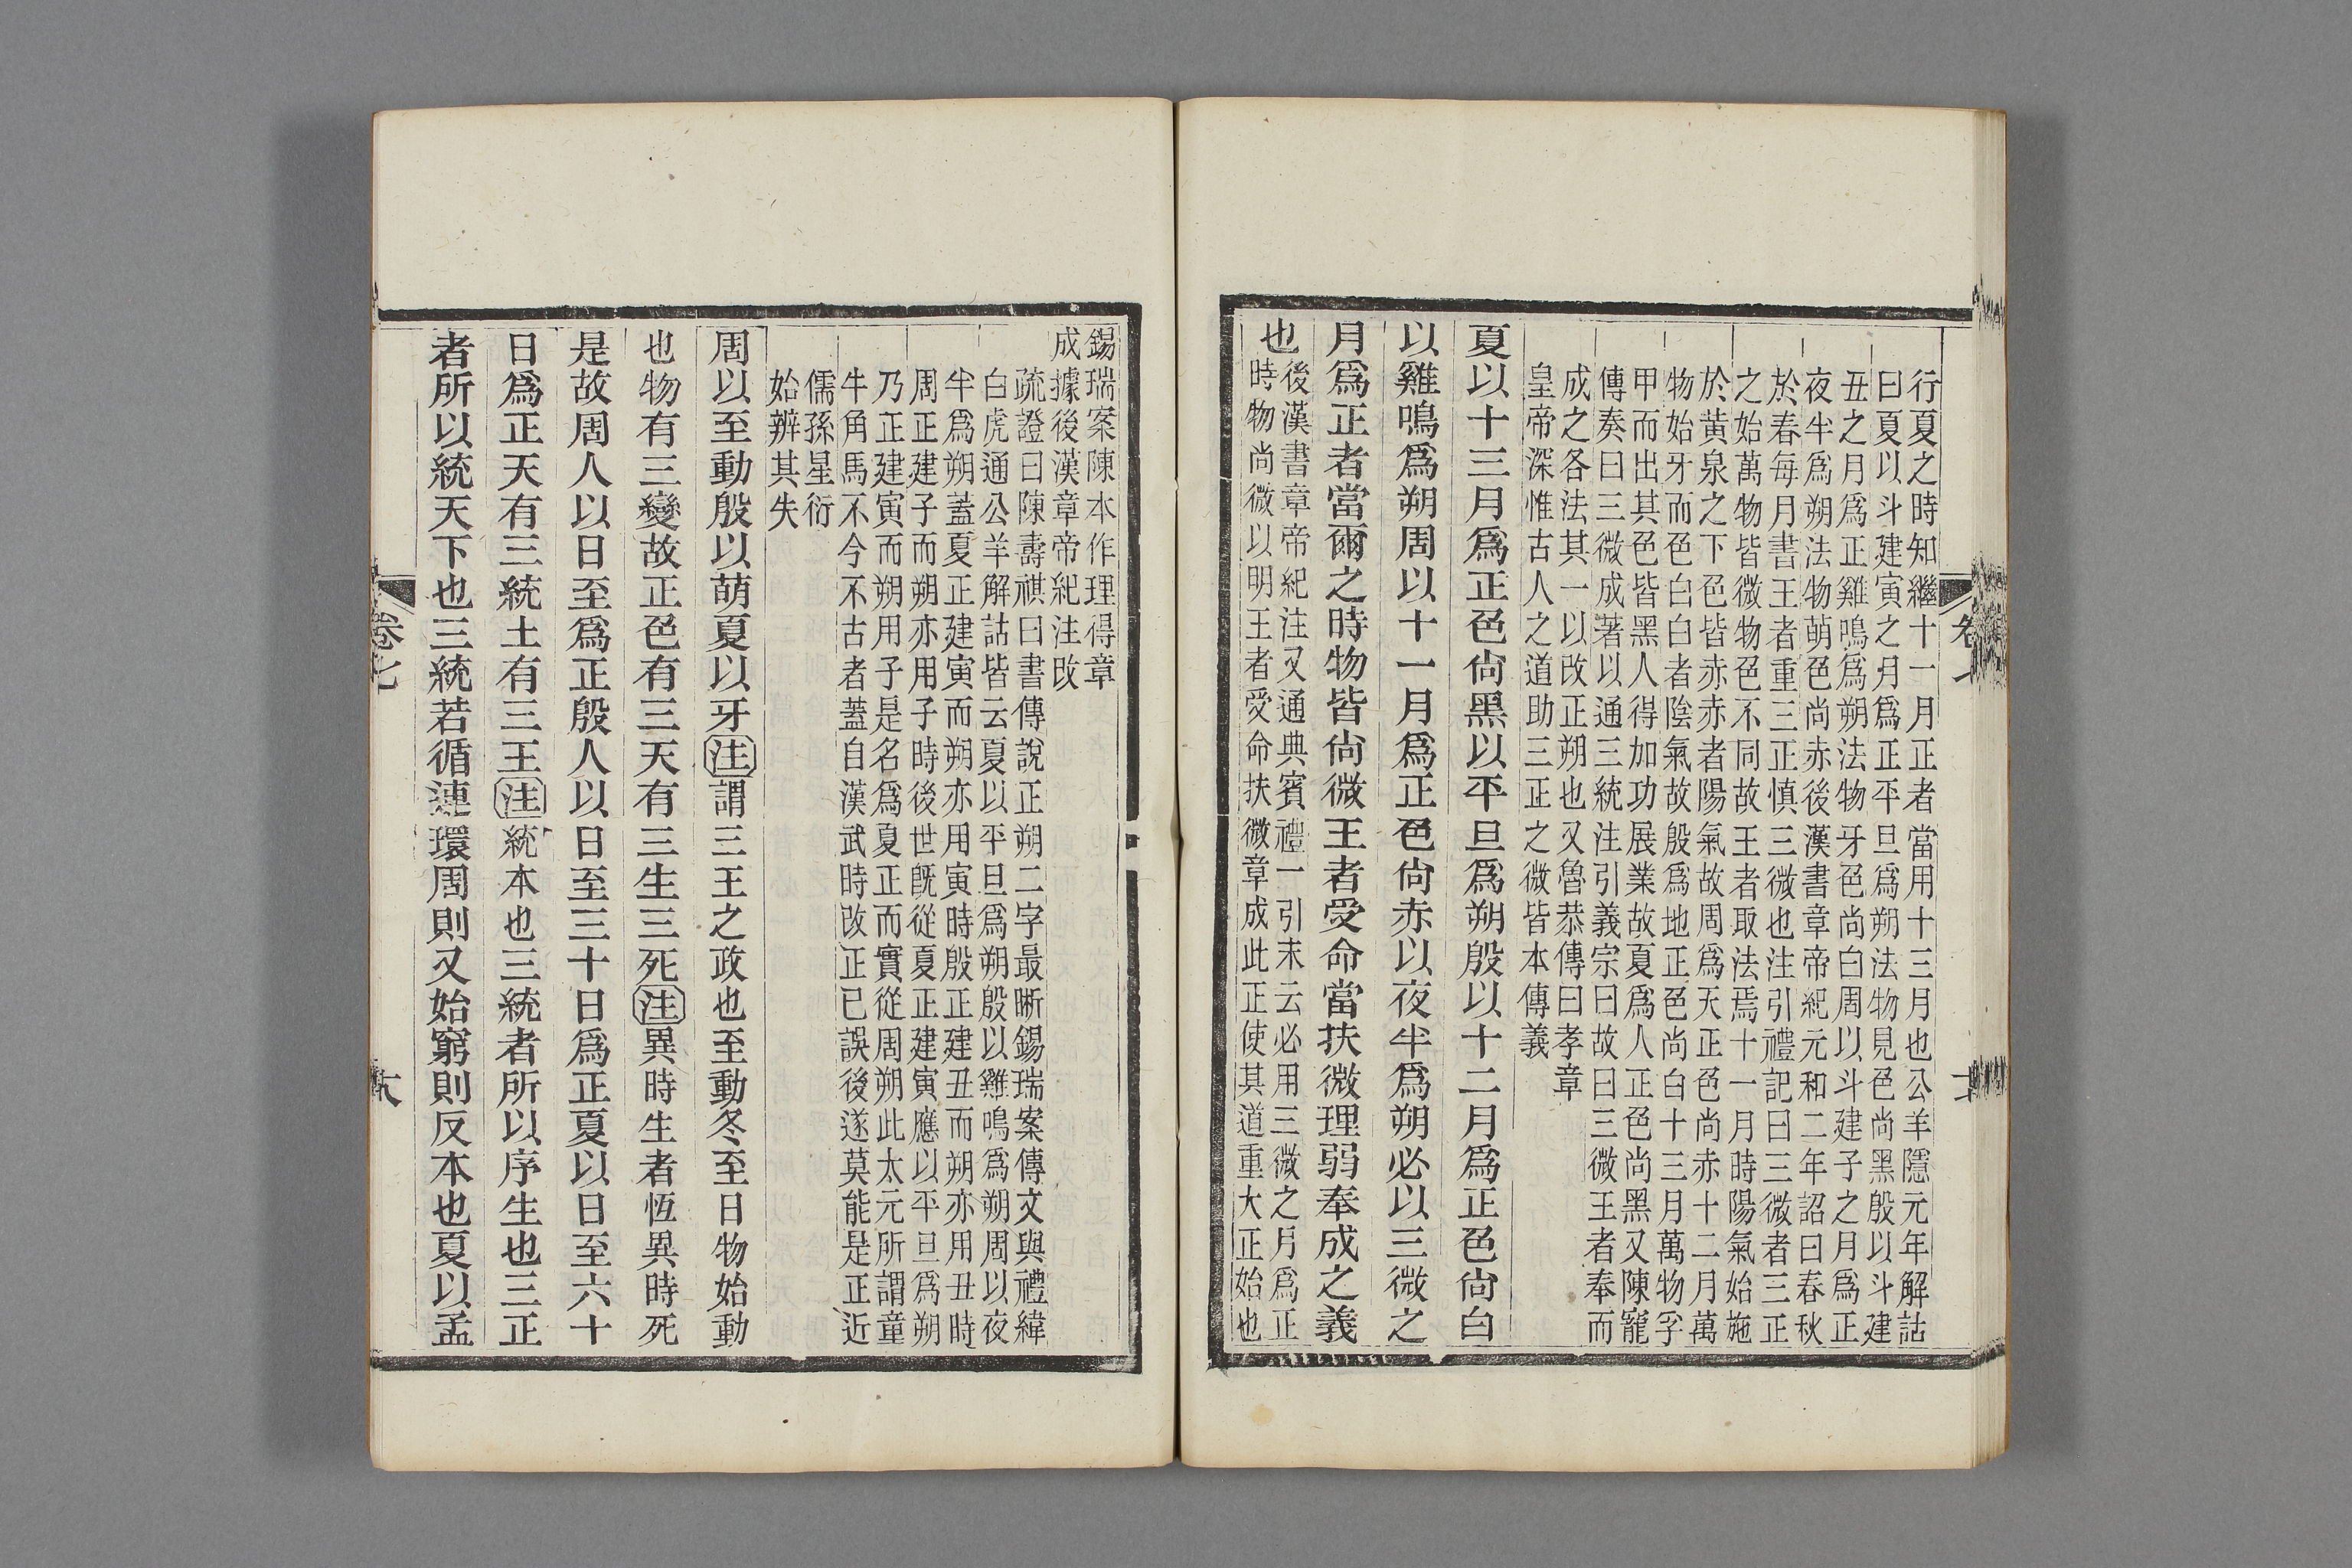 行夏之時知繼十一月正者當用十三月也公羊隱元年解詁
曰夏以斗建寅之月爲正平旦爲朔法物見色尚黑殷以斗建
丑之月爲正雞鳴爲朔法物牙色尚白周以斗建子之月爲正
夜半爲朔法物萌色尚赤後漢書章帝紀元和二年詔曰春秋
於春每月書王者重三正慎三微也注引禮記曰三微者三正
之始萬物皆微物色不同故王者取法焉十一月時陽氣始施
於黃泉之下色皆赤赤者陽氣故周爲天正色尚赤十二月萬
物始牙而色白白者陰氣故殷爲地正色尚白十三月萬物孚
甲而出其色皆黑人得加功展業故夏爲人正色尚黑又陳寵
傳奏曰三微成著以通三統注引義宗曰故曰三微王者奉而
成之各法其一以改正朔也又魯恭傳曰孝章
皇帝深惟古人之道助三正之微皆本傳義
夏以十三月爲正色尚黑以平旦爲朔殷以十二月爲正色尚白
以雞鳴爲朔周以十一月爲正色尚赤以夜半爲朔必以三微之
月爲正者當爾之時物皆尚微王者受命當扶微理弱奉成之義
也
後漢書章帝紀注又通典賓禮一引末云必用三微之月爲正
時物尚微以明王者受命扶微章成此正使其道重大正始也
卷七
錫瑞案陳本作理得章
成據後漢章帝紀注改
疏證曰陳壽祺曰書傳說正朔二字最晰錫瑞案傳文與禮緯
白虎通公羊解詁皆云夏以平旦爲朔殷以雞鳴爲朔周以夜
半爲朔蓋夏正建寅而朔亦用寅時殷正建丑而朔亦用丑時
周正建子而朔亦用子時後世旣從夏正建寅應以平旦爲朔
乃正建寅而朔用子是名爲夏正而實從周朔此太元所謂童
牛角馬不今不古者蓋自漢武時改正已誤後遂莫能是正近
儒孫星衍
始辨其失
周以至動殷以萌夏以牙注謂三王之政也至動冬至日物始動
也物有三變故正色有三天有三生三死注異時生者恆異時死
是故周人以日至爲正殷人以日至三十日爲正夏以日至六十
日爲正天有三統土有三王注統本也三統者所以序生也三正
者所以統天下也三統若循連環周則又始窮則反本也夏以孟
卷七
六